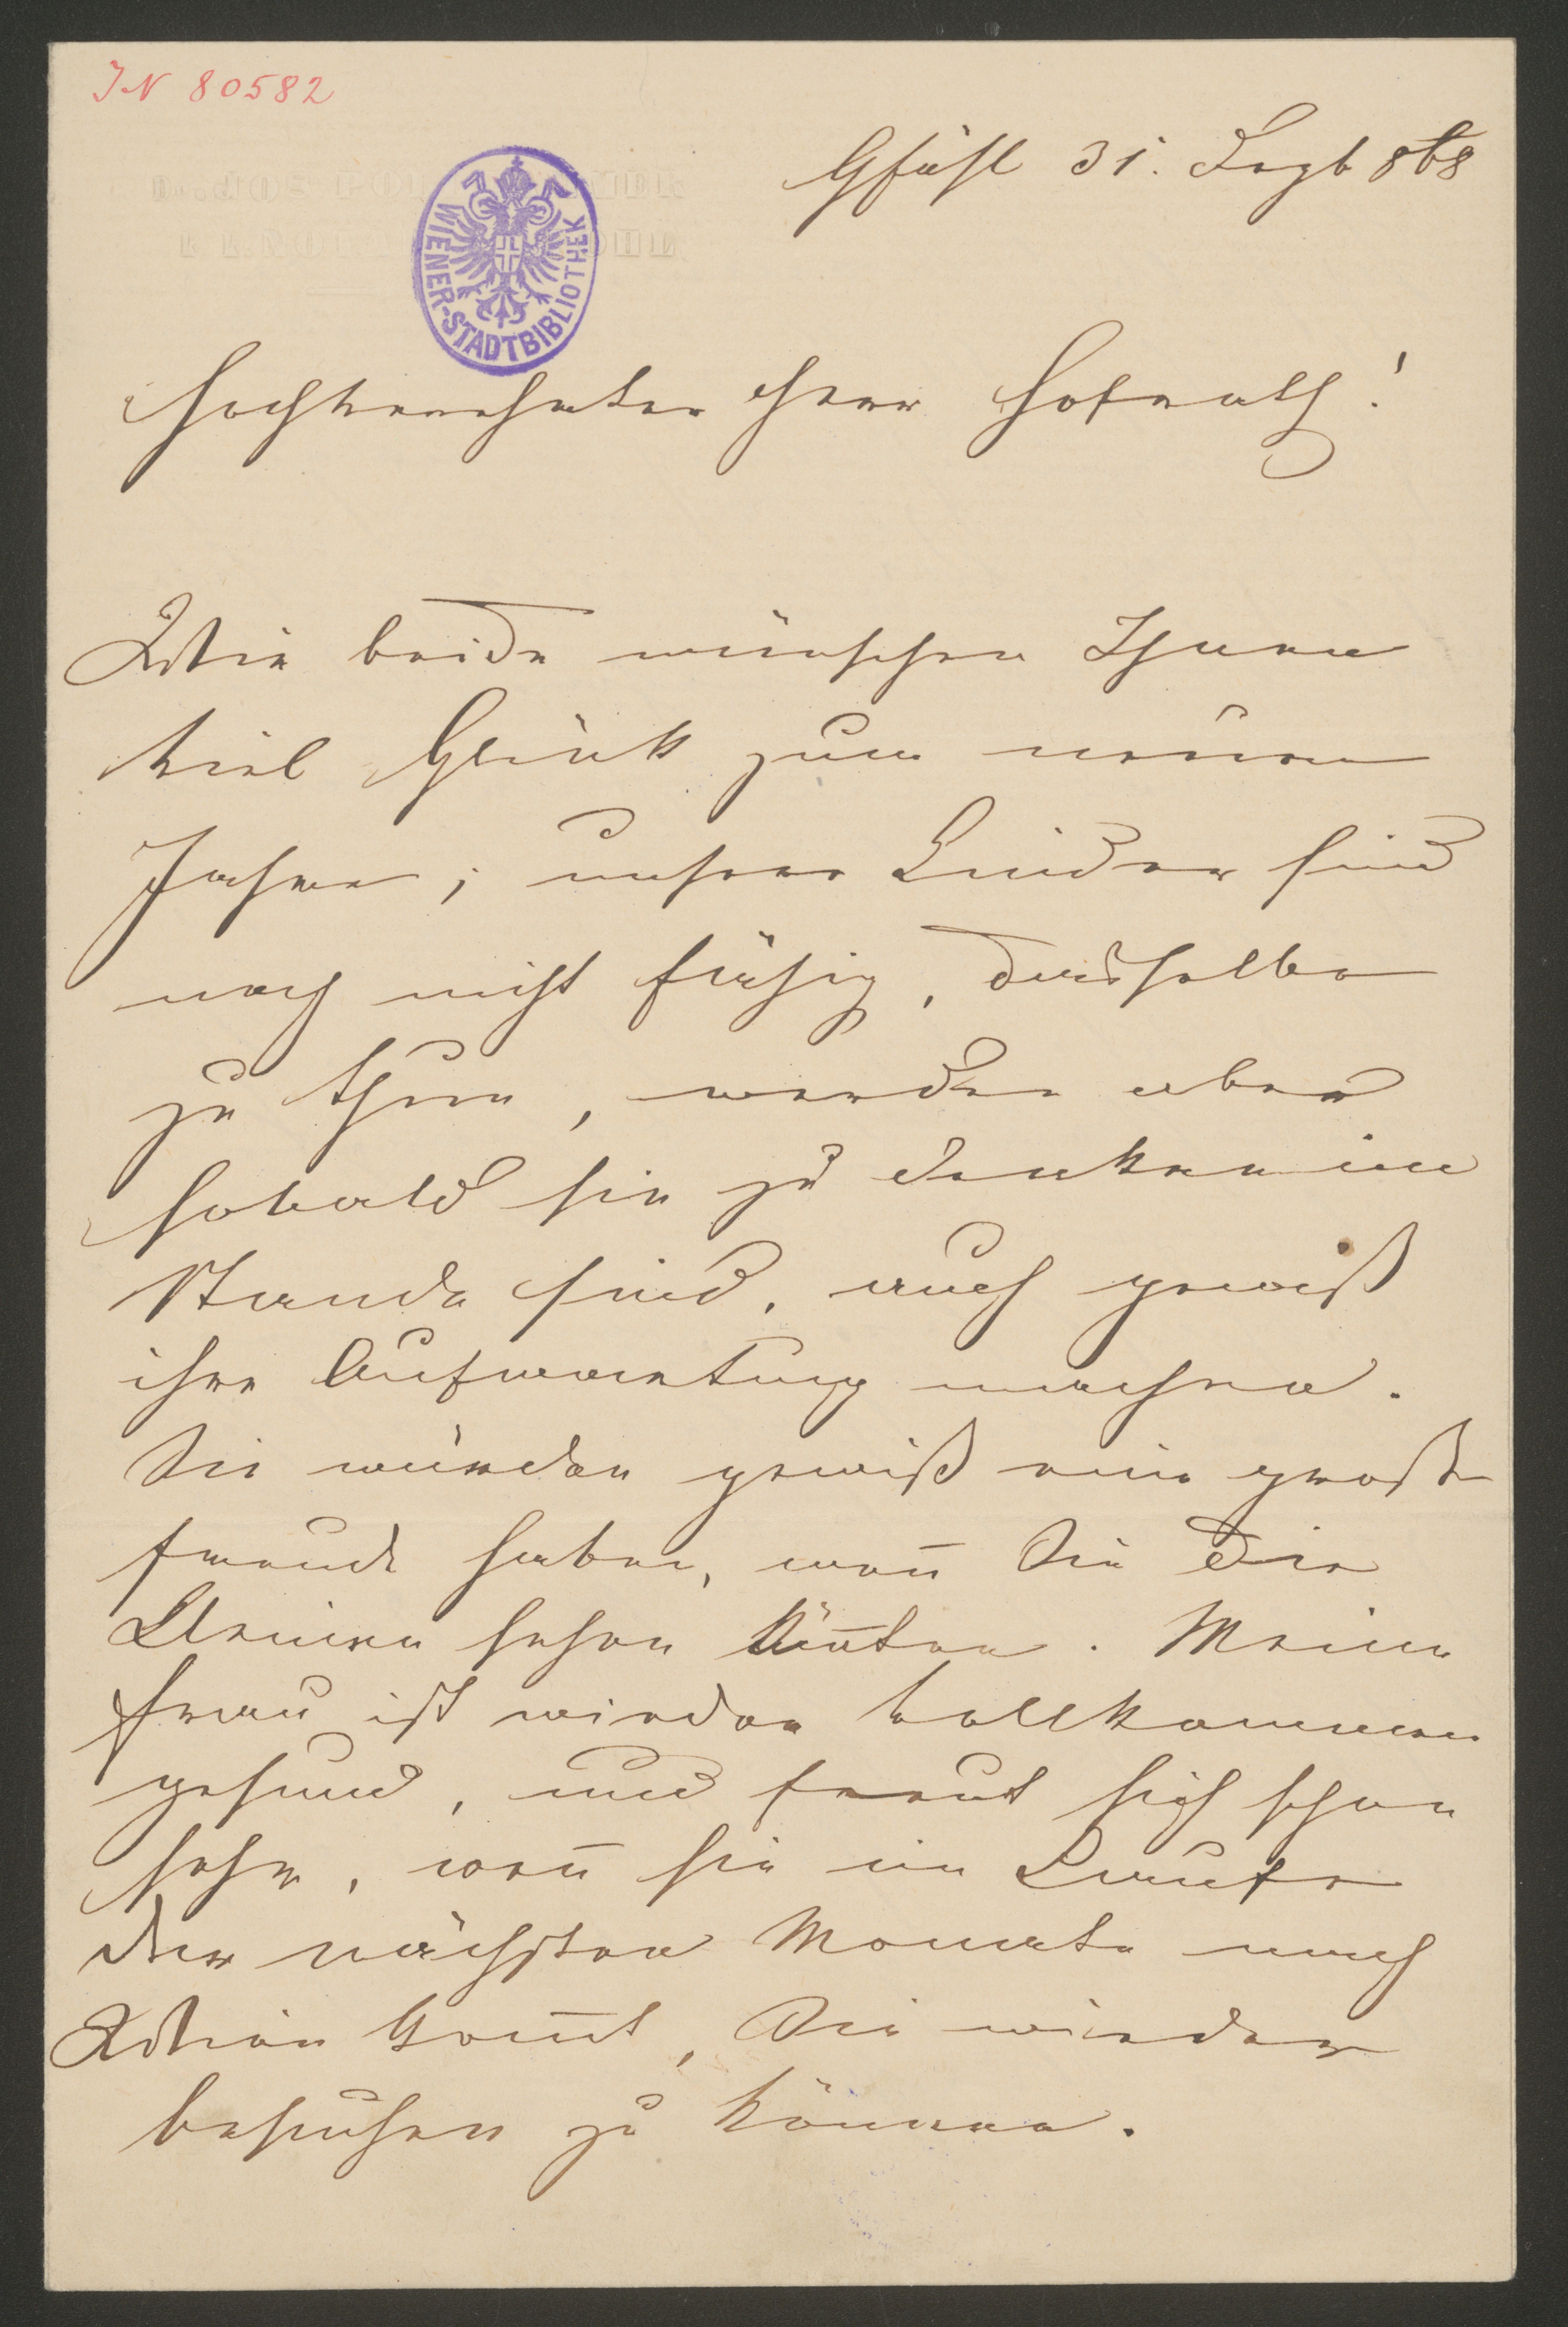 IN 80582
Gföhl 31. Dezb 868
WIENER-STADTBIBLIOTHEK
Hochverehrter Herr Hofrath!
Wir beide wünschen Ihnen
viel Glück zum neuen
Jahre; unsere Kinder sind
noch nicht fähig, dasselbe
zu thun, werden aber
sobald sie zu denken im
Stande sind, auch gewiß
ihre Aufwartung machen.
Sie würden gewiß eine große
Freude haben, wen̄ Sie die
Kleinen sehen kön̄ten. Meine
Frau ist wieder vollkommen
gesund, und freut sich schon
sehr, wen̄ sie im Laufe
der nächsten Monate nach
Wien kom̄t, Sie wieder
besuchen zu können.